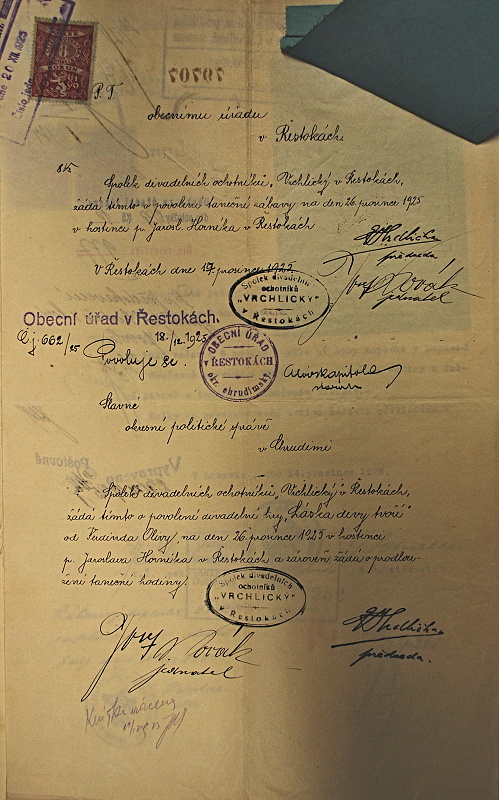 20 XII. 1925
79707
P. T.
obecnímu úřadu
v Řestokách.
Spolek divadelních ochotníků „Vrchlický“ v Řestokách,
žádá tímto o povolení taneční zábavy na den 26. prosince 1925
v hostinci p. Jarosl. Horníka v Řestokách
V Řestokách dne 17 prosince 1925.
předseda
Jos. Novák
jednatel
Spolek divadelních
ochotníků
„VRCHLICKÝ“
v Řestokách
Obecní úřad v Řestokách.
Čj. 662/25
18./12. 1925
Povoluje se.
OBECNÍ ÚŘAD
v ŘESTOKÁCH
okr. chrudimský.
starosta
Slavné
okresní politické správě
v Chrudimi
Spolek divadelních ochotníků „Vrchlický“ v Řestokách,
žádá tímto o povolení divadelní hry „Láska divy tvoří“
od Ferdinda Olivy, na den 26 prosince 1925 v hostinci
p. Jaroslava Horníka v Řestokách a zároveň žádá o prodlou-
žení taneční hodiny.
Spolek divadelních
ochotníků
„VRCHLICKÝ“
v Řestokách
Jos. Novák
jednatel
předseda.